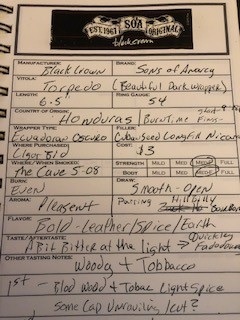 EST. 1967 SOA ORIGINAL
black crown
MANUFACTURER: BRAND:
Black Crown Sons of Anarcy
VITOLA:
Torpedo (Beautiful Dark wrapper)
LENGTH: RING GAUGE:
6.5 54
COUNTRY OF ORIGIN:
Honduras
WRAPPER TYPE: FILLER:
Ecuadorian Oscuro Cuban Seed Longfil Nicar
WHERE PURCHASED: COST:
Cigar Bid $3
WHERE/WHEN SMOKED: STRENGTH MILD MED MED+ FULL
The Cave 5-08 BODY MILD MED MED+ FULL
BURN: DRAW:
Even Smooth - Open
AROMA: Pairing Hillbilly
Pleasent Bourbon
FLAVOR:
Bold - Leather/Spice/Earth
TASTE/AFTERTASTE:
A Bit Bitter at the light → Quickly
Fadedaway
OTHER TASTING NOTES:
Woody + Tobbacco
1st - Wood + Tobac Light Spice
Some Cap Unraviling / cut?